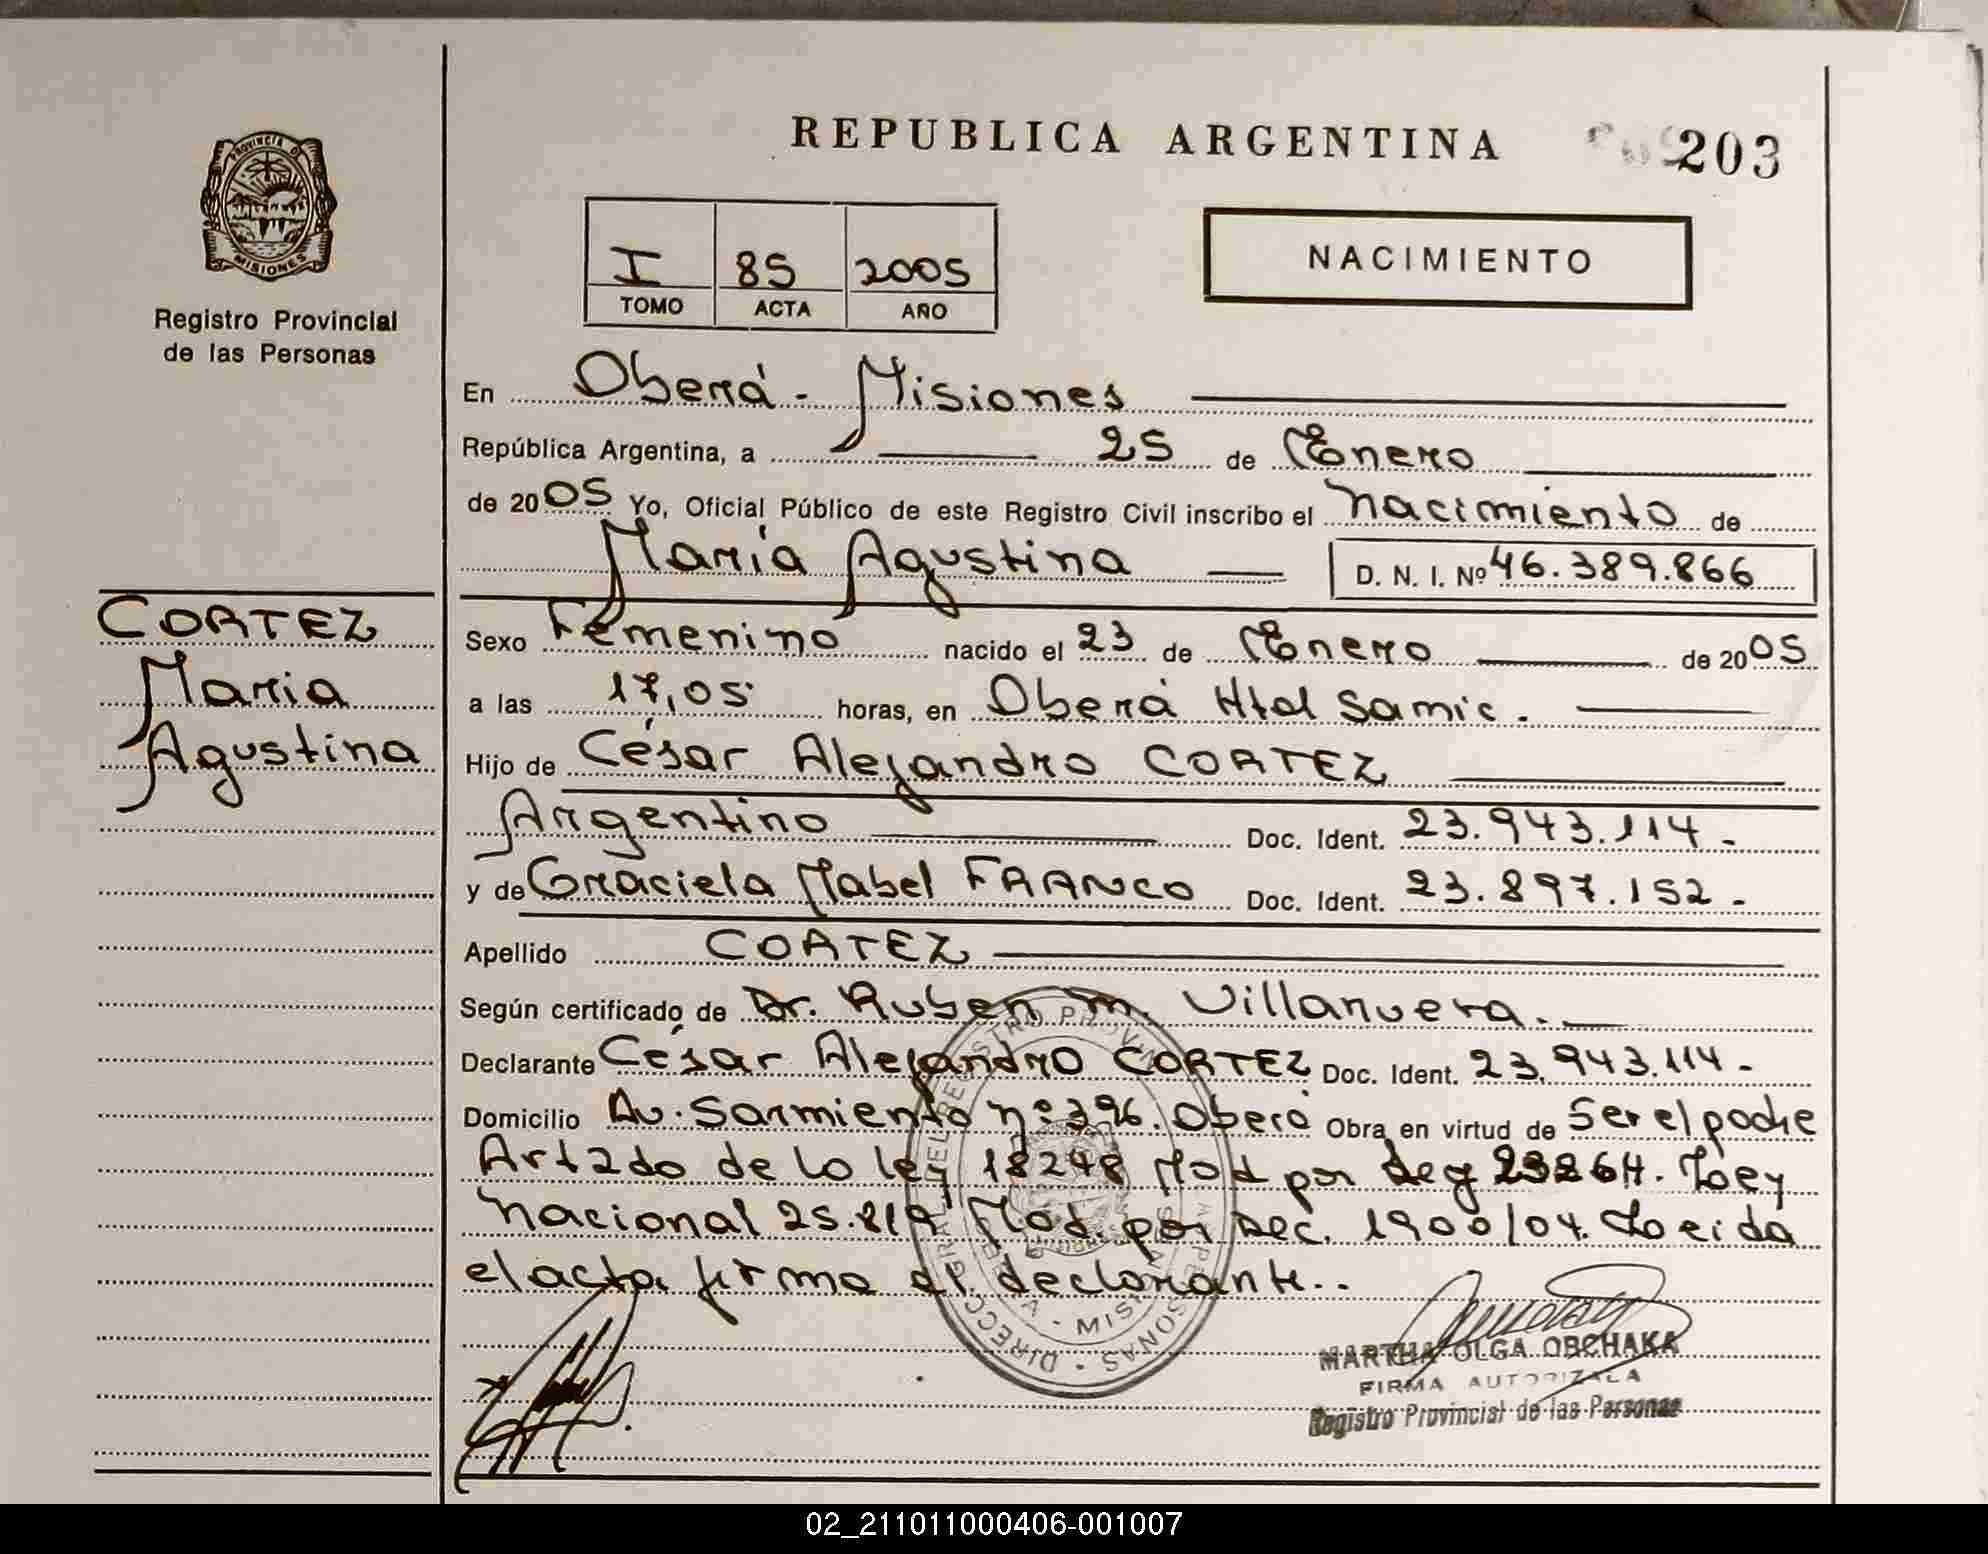 REPUBLICA ARGENTINA
203
PROVINCIA D
MISIONES
Registro Provincial
de las Personas
I 85 2005
TOMO ACTA AÑO
NACIMIENTO
En Oberá - Misiones
República Argentina, a 25 de Enero
de 2005 Yo, Oficial Público de este Registro Civil inscribo el nacimiento de
María Agustina D. N. I. Nº 46.389.866
CORTEZ
Maria
Agustina
Sexo Femenino nacido el 23 de Enero de 2005
a las 17,05 horas, en Oberá Htal Samic.
Hijo de César Alejandro CORTEZ
Argentino Doc. Ident. 23.943.114-
y de Graciela Mabel FRANCO Doc. Ident. 23.897.152-
Apellido CORTEZ
Según certificado de Dr. Ruben M. Villanueva.
Declarante César Alejandro CORTEZ Doc. Ident. 23.943.114-
Domicilio Av. Sarmiento nº 396. Oberá Obra en virtud de Ser el padre
Art 2do de la ley 18248 Mod por Ley 23264. Ley
Nacional 25.819 Mod. por Dec. 1900/04. Leida
el acta firma el declarante..
MARTHA OLGA OBCHAKA
FIRMA AUTORIZADA
Registro Provincial de las Personas
02_211011000406-001007